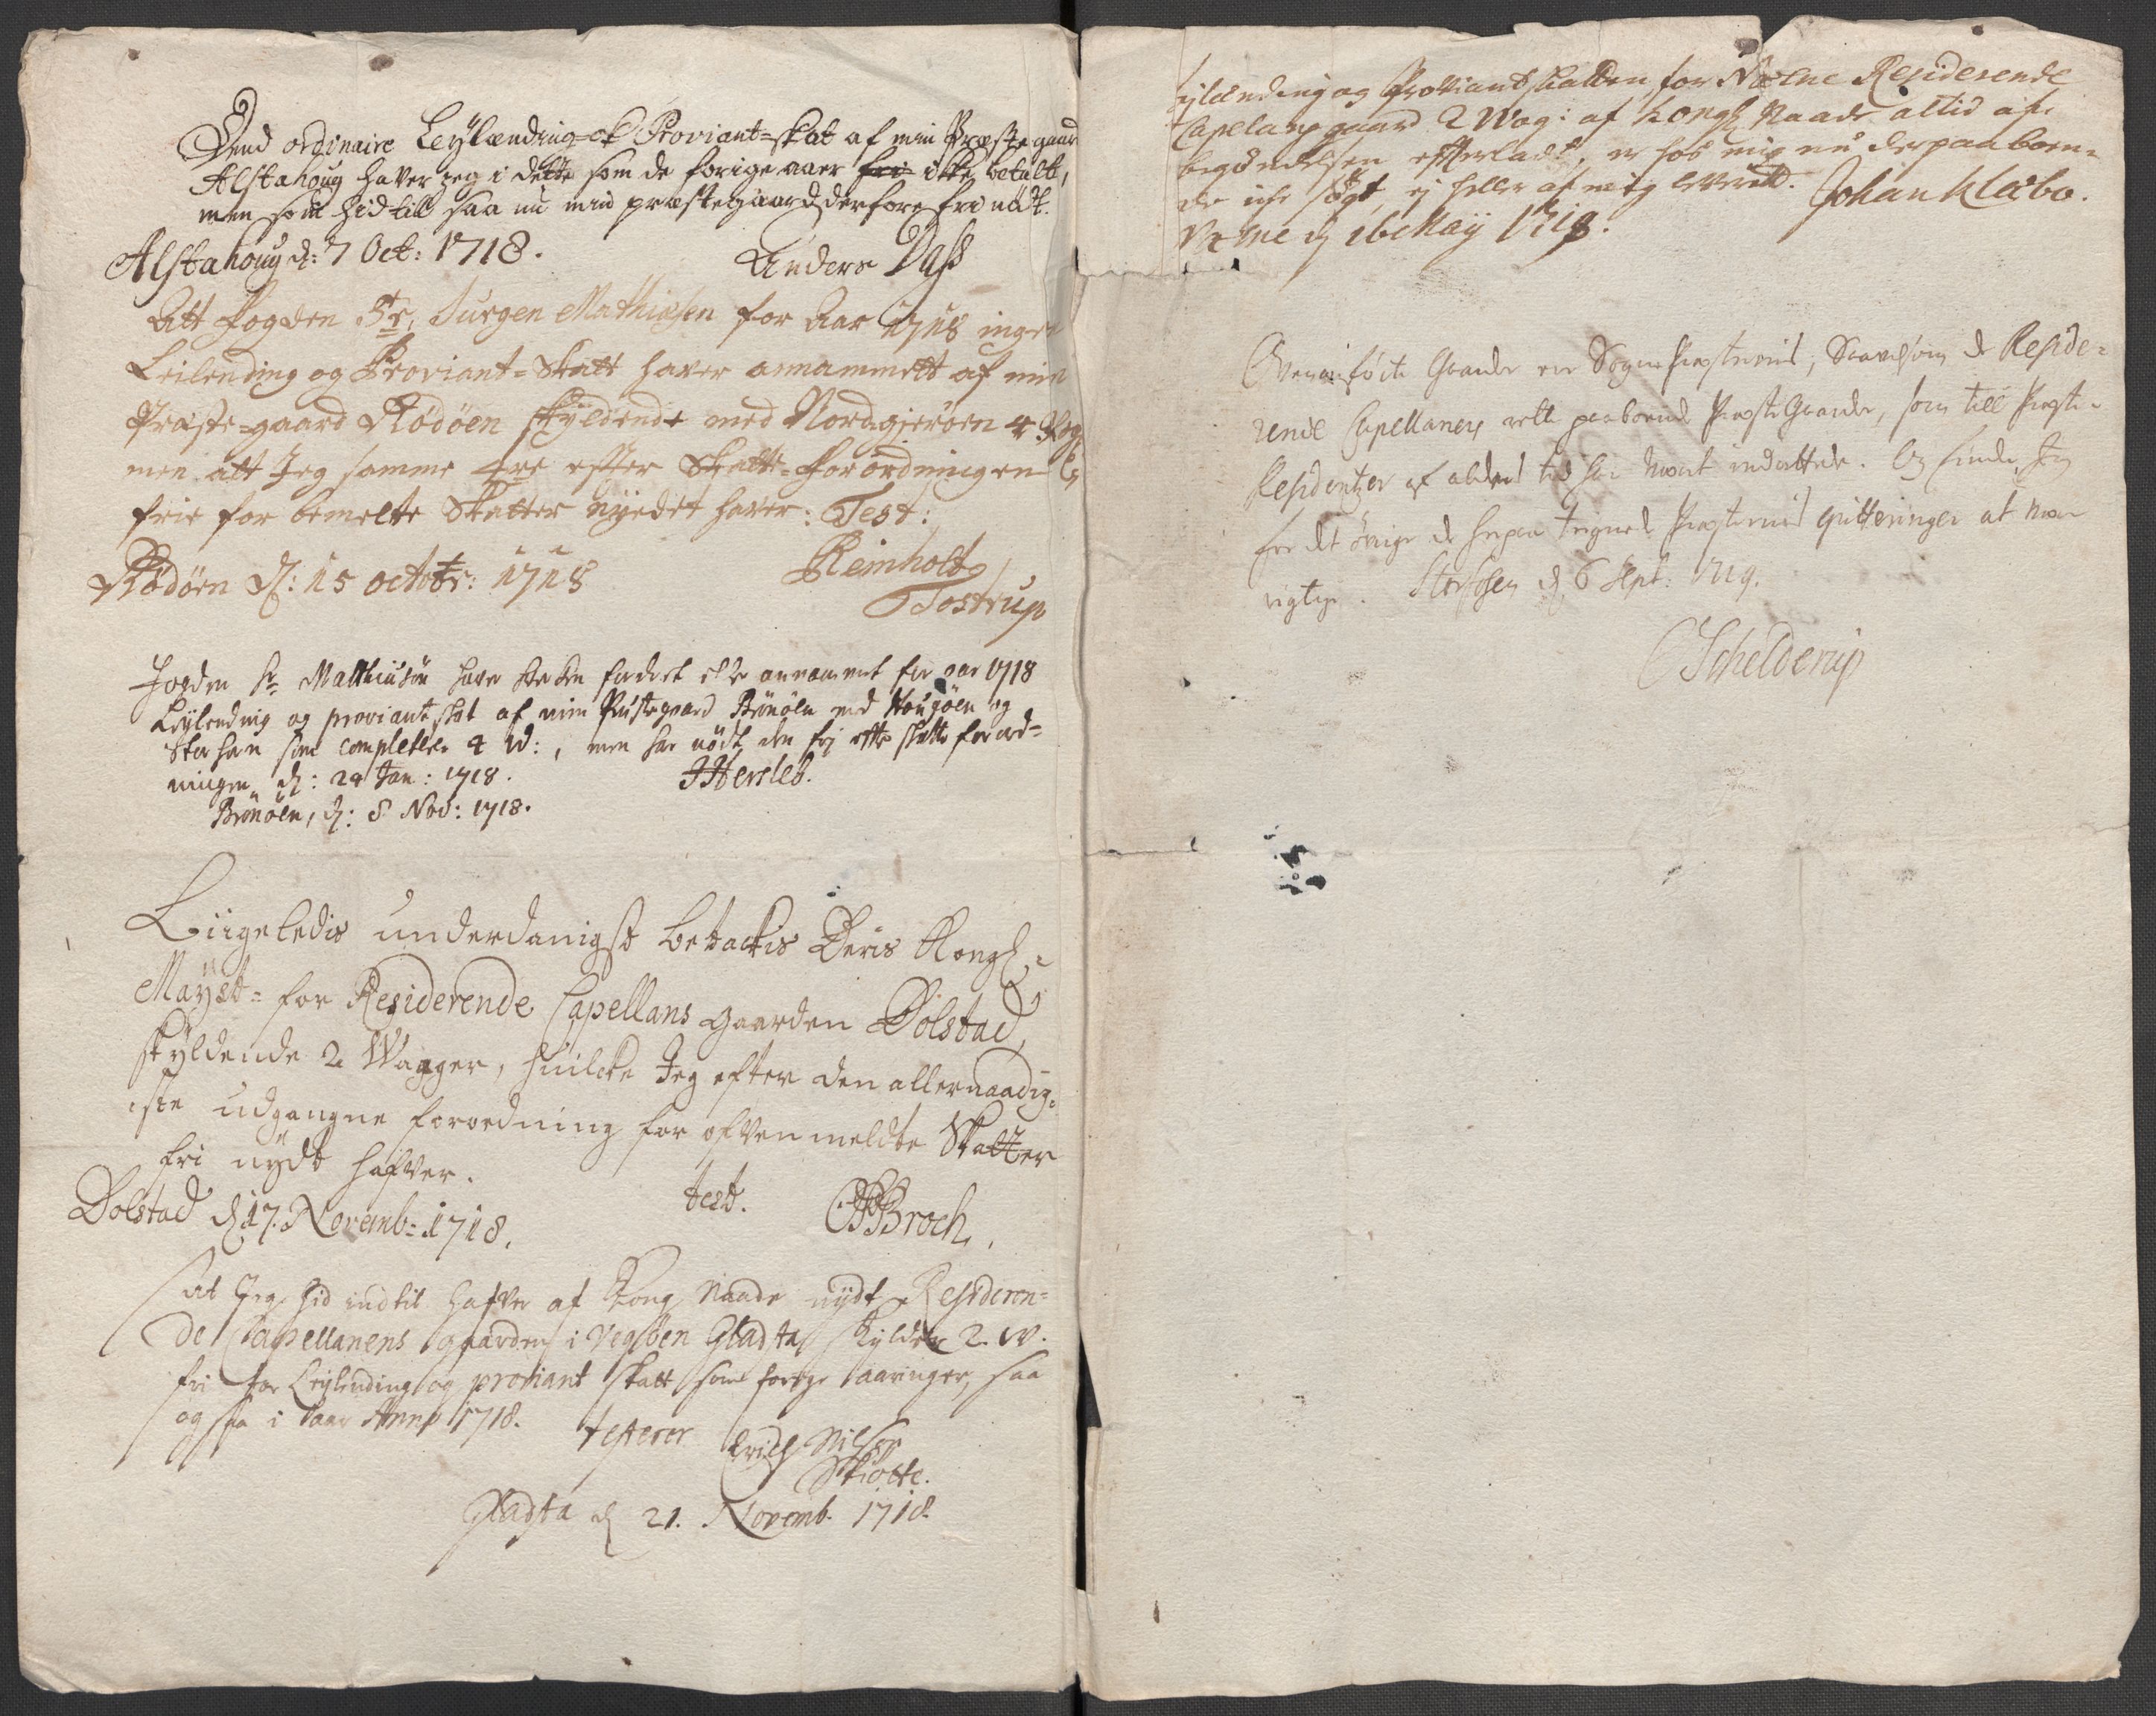 Dend ordinaire Leylænding- ok Proviant-skat af min Præstegaard
Alstahoug haver jeg i dette som de forige aaer fri icke betalt,
men som hid till saa nu min præstegaard derfore fri nødt.
Alstahoug d: 7 Oct: 1718.
Anders Dass
Att Fogden Sr. Jurgen Mathiesen for Aar 1718 inget
Leilending og Proviant-Skatt haver annammett af min
Præste-gaard Rødøen skyldende med Nordgjerøen 4
men att Jeg samme efter Skatte-Forordningen
frie for bemelte Skatter nyedet haver: Test:
Rødøen d: 15 octobr: 1718
Reinholt
Tostrup
Fogden Sr Matthiesøn haver fordret eller annammet for aar 1718
Leylending og proviantskat af min Præstegaard Brønøen med Hougøen og
som 4 W:, men har nødt den fri efter skatte forord-
ningen d: 24 Jan: 1718.
JHersleb.
Brønøen, d: 8 Nov: 1718.
Liigeledis underdanigst betackis Deris Kongl-
Mayst- for Residerende Capellans gaarden Dolstad,
skyldende 2 Wagger, huilcke Jeg efter den allernaadig-
ste udgangne forordning for ofvenmeldte Skatter
fri nydt hafver.
Dolstad d 17. Novemb: 1718.
test.
Broch.
At Jeg hid indtil hafver af Kong Naade nydt Resideren-
de Capellanens gaarden i Vegøen Gladsta skylder 2 W.
fri for Leylending og proviant skatt som forrige aaringer, saa
ogsaa i aar Anno 1718.
testerer Erich Nilsøn
Skiøtte.
Gladsta d 21. Novemb. 1718.
Leylending og Proviant skatten for Nærne Residerende
Capelansgaard 2 Wog: af Kongl Naade altid af
begyndelsen efterladt, er hos mig nu derpaa boen-
de icke søgt, ej heller af mig leverett.
Johan Klæbo.
Nærne d 16 May 1718.
Ovenanførte Gaarder ere Sogne Præsternis, Saavelsom de Reside-
rende Capellaners rette paaboende Præste Gaarder, som till Præste-
Residentzer af alders tid har været indrettede. Og finder Jeg
for det øvrige de herpaa teignede Præsternis qvitteringer at være
rigtige. d 6 Sept: 1719.
Schelderup